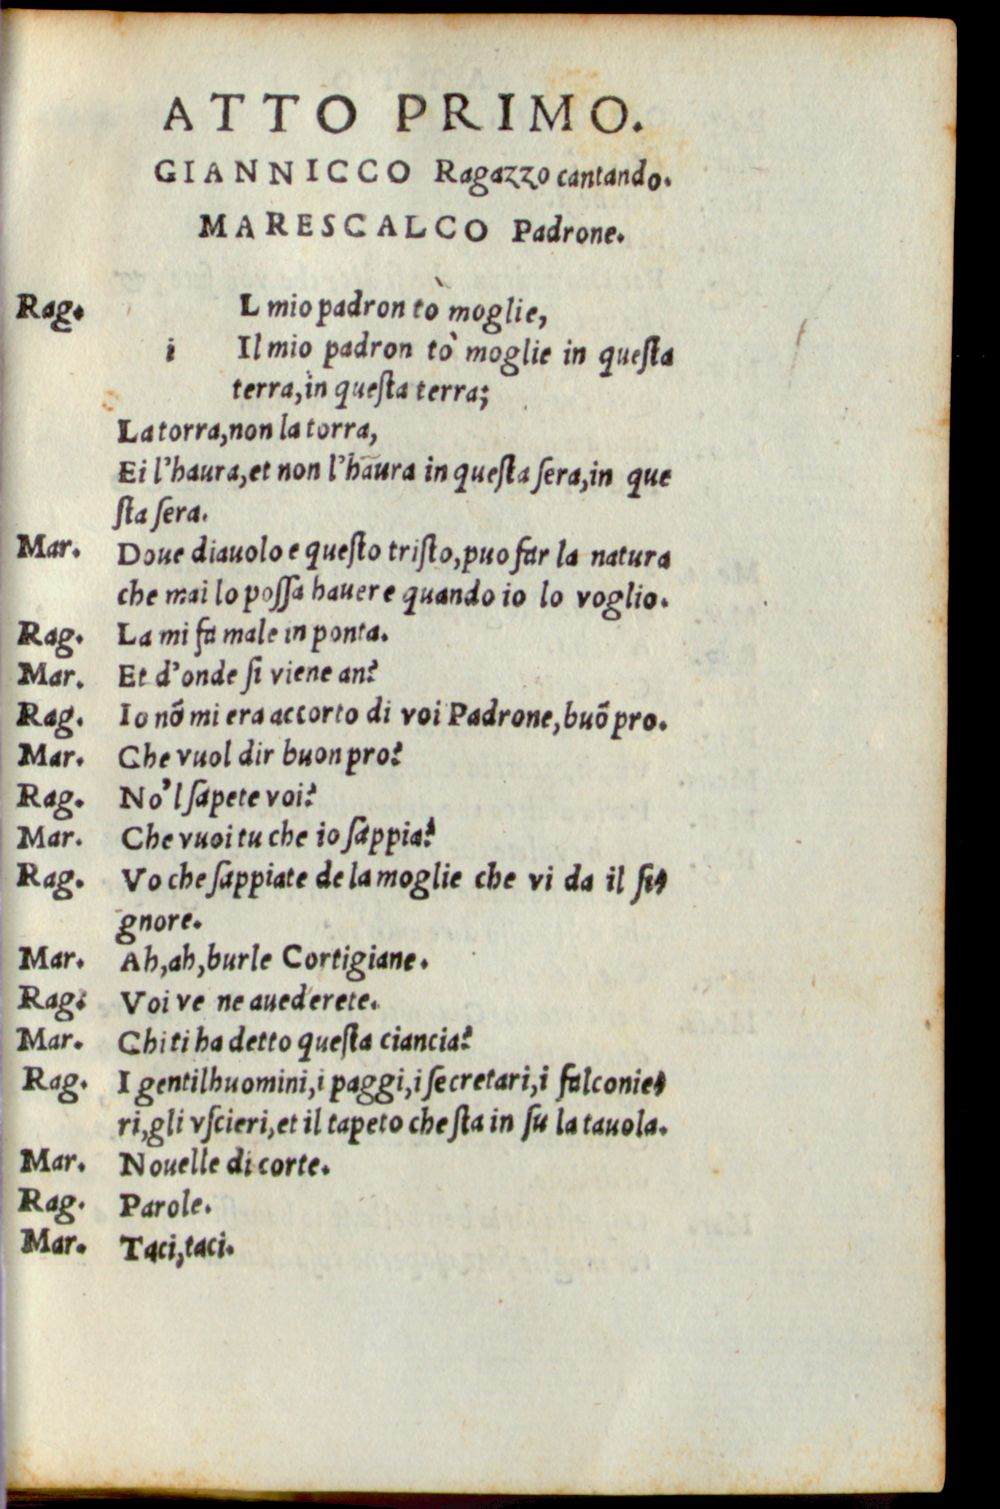 ATTO PRIMO.
GIANNICCO Ragazzo cantando.
MARESCALCO Padrone.
Rag. L mio padron tò moglie,
i Il mio padron tò moglie in queſta
terra, in queſta terra;
La torra, non la torra,
Ei l'haura, et non l'haura in queſta ſera, in que
ſta ſera.
Mar. Doue diauolo e queſto triſto, puo far la natura
che mai lo poſſa hauere quando io lo voglio.
Rag. La mi fa male in ponta.
Mar. Et d'onde ſi viene an?
Rag. Io nõ mi era accorto di voi Padrone, buõ pro.
Mar. Che vuol dir buon pro?
Rag. No'l ſapete voi?
Mar. Che vuoi tu che io ſappia?
Rag. Vo che ſappiate de la moglie che vi da il ſi-
gnore.
Mar. Ah, ah, burle Cortigiane.
Rag. Voi ve ne auederete.
Mar. Chi ti ha detto queſta ciancia?
Rag. I gentilhuomini, i paggi, i ſecretari, i falconie-
ri, gli vſcieri, et il tapeto che ſta in ſu la tauola.
Mar. Nouelle di corte.
Rag. Parole.
Mar. Taci, taci.